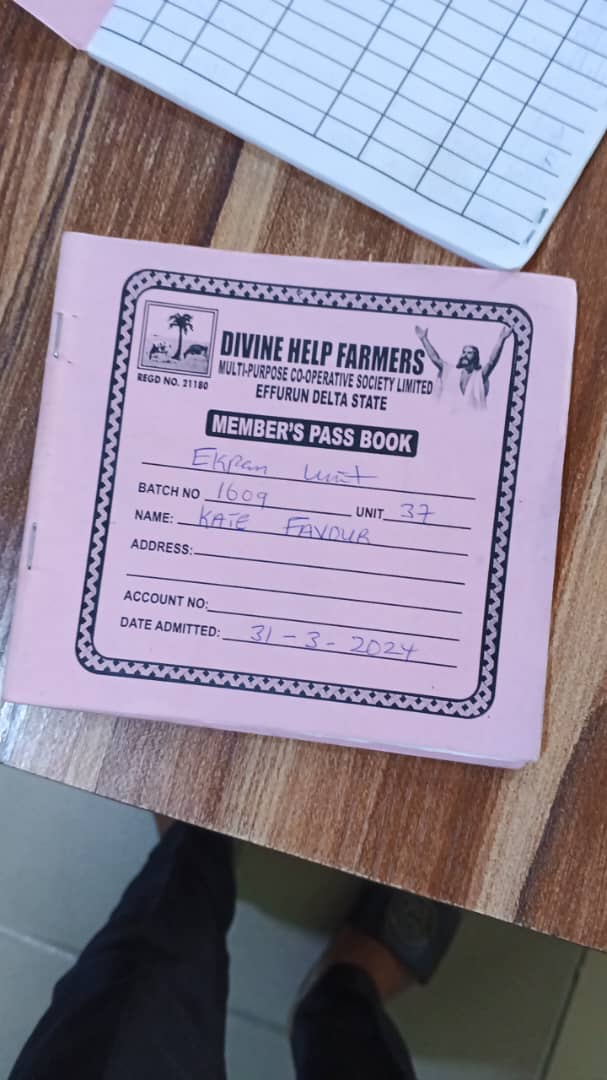 DIVINE HELP FARMERS
MULTI-PURPOSE CO-OPERATIVE SOCIETY LIMITED
REGD NO. 21180
EFFURUN DELTA STATE
MEMBER'S PASS BOOK
Ekpan Unit
BATCH NO 1609 UNIT 37
NAME: KATE FAVOUR
ADDRESS:
ACCOUNT NO:
DATE ADMITTED: 31-3-2024